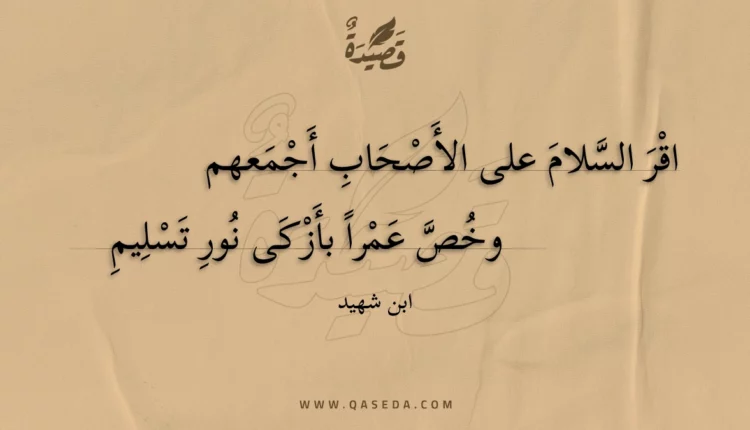 قَصِيدَةٌ
اقْرَ السَّلامَ على الأَصْحَابِ أَجْمَعهم
وخُصَّ عَمْراً بأَزْكَى نُورِ تَسْلِيمِ
ابن شهيد
WWW.QASEDA.COM